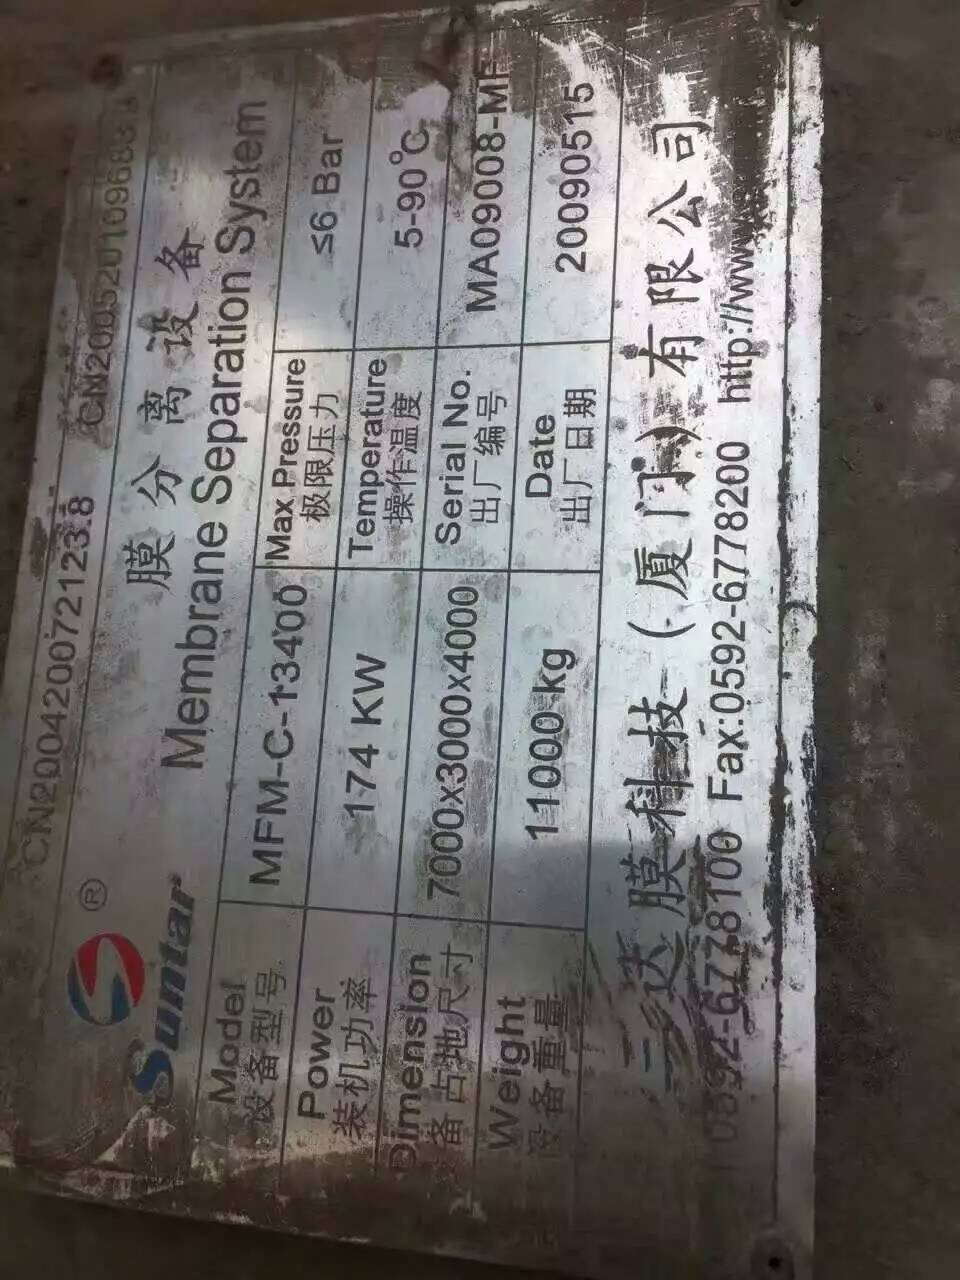 CN200420072123.8 CN200520109683.3
Suntar ®
膜分离设备
Membrane Separation System
Model MFM-C-13400 Max Pressure ≤6 Bar
设备型号 极限压力
Power 174 KW Temperature 5-90℃
装机功率 操作温度
Dimension 7000x3000x4000 Serial No. MA09008-MF
备占地尺寸 出厂编号
Weight 11000 kg Date 20090515
设备重量 出厂日期
三达膜科技（厦门）有限公司
0592-6778100 Fax:0592-6778200 http://www.